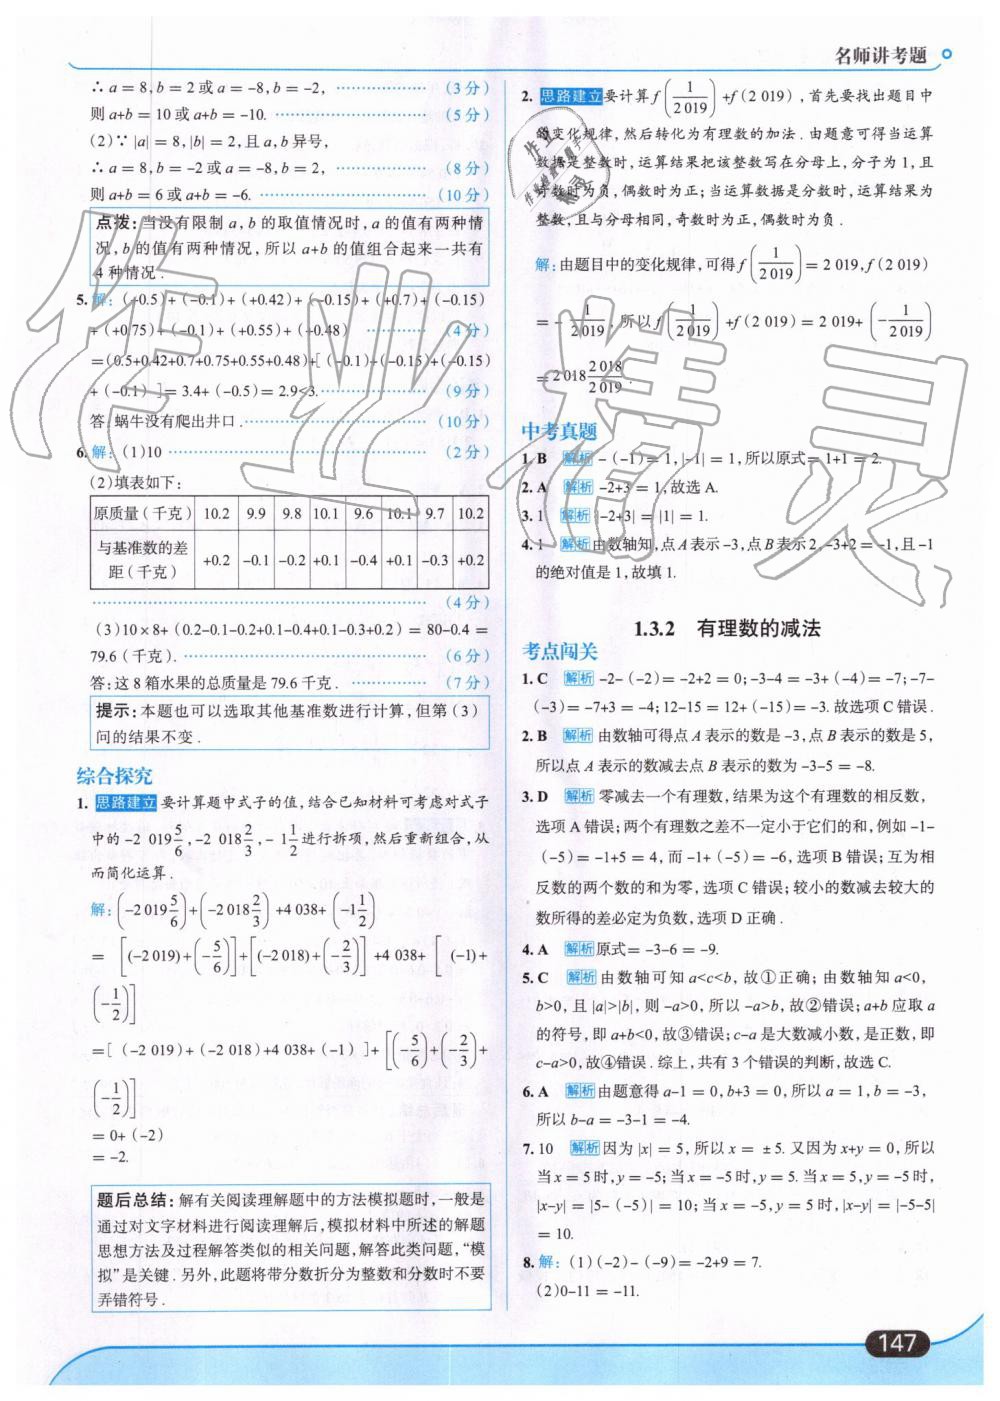 名师讲考题
∴ a = 8,b = 2或 a = -8,b = -2, ………………… (3分)
则 a+b = 10或 a+b = -10. ………………… (5分)
(2)∵ |a| = 8,|b| = 2,且 a,b 异号,
∴ a = 8,b = -2或 a = -8,b = 2, ………………… (8分)
则 a+b = 6或 a+b = -6. ………………… (10分)
点拨:当没有限制 a,b 的取值情况时,a 的值有两种情
况,b 的值有两种情况,所以 a+b 的值组合起来一共有
4种情况.
5. 解:(+0.5)+(-0.1)+(+0.42)+(-0.15)+(+0.7)+(-0.15)
+(+0.75)+(-0.1)+(+0.55)+(+0.48) ………… (4分)
=(0.5+0.42+0.7+0.75+0.55+0.48)+[(-0.1)+(-0.15)+(-0.15)
+(-0.1)] = 3.4+(-0.5)= 2.9<3. ………………… (9分)
答:蜗牛没有爬出井口. ………………… (10分)
6. 解:(1)10 ………………… (2分)
(2)填表如下:
原质量(千克) 10.2 9.9 9.8 10.1 9.6 10.1 9.7 10.2
与基准数的差
距(千克) +0.2 -0.1 -0.2 +0.1 -0.4 +0.1 -0.3 +0.2
………………… (4分)
(3)10×8+(0.2-0.1-0.2+0.1-0.4+0.1-0.3+0.2)= 80-0.4 =
79.6(千克). ………………… (6分)
答:这8箱水果的总质量是79.6千克. ………………… (7分)
提示:本题也可以选取其他基准数进行计算,但第(3)
问的结果不变.
综合探究
1. 思路建立 要计算题中式子的值,结合已知材料可考虑对式子
中的 -2 019 5/6,-2 018 2/3,-1 1/2 进行拆项,然后重新组合,从
而简化运算.
解:(-2 019 5/6)+(-2 018 2/3)+4 038+(-1 1/2)
= [(-2 019)+(-5/6)]+[(-2 018)+(-2/3)]+4 038+[(-1)+
(-1/2)]
=[(-2 019)+(-2 018)+4 038+(-1)]+[(-5/6)+(-2/3)+
(-1/2)]
= 0+(-2)
= -2.
题后总结:解有关阅读理解题中的方法模拟题时,一般是
通过对文字材料进行阅读理解后,模拟材料中所述的解题
思想方法及过程解答类似的相关问题,解答此类问题,“模
拟”是关键.另外,此题将带分数折分为整数和分数时不要
弄错符号.
2. 思路建立 要计算 f(1/2 019)+f(2 019),首先要找出题目中
的变化规律,然后转化为有理数的加法.由题意可得当运算
数据是整数时,运算结果把该整数写在分母上,分子为1,且
奇数时为负,偶数时为正;当运算数据是分数时,运算结果为
整数,且与分母相同,奇数时为正,偶数时为负.
解:由题目中的变化规律,可得 f(1/2 019)= 2 019,f(2 019)
= -1/2 019,所以 f(1/2 019)+f(2 019)= 2 019+(-1/2 019)
= 2 018 2 018/2 019.
中考真题
1. B 解析 -(-1)= 1,|-1| = 1,所以原式 = 1+1 = 2.
2. A 解析 -2+3 = 1,故选A.
3. 1 解析 |-2+3| = |1| = 1.
4. 1 解析 由数轴知,点A表示-3,点B表示2,-3+2 = -1,且-1
的绝对值是1,故填1.
1.3.2 有理数的减法
考点闯关
1. C 解析 -2-(-2)= -2+2 = 0;-3-4 = -3+(-4)= -7;-7-
(-3)= -7+3 = -4;12-15 = 12+(-15)= -3.故选项C错误.
2. B 解析 由数轴可得点A表示的数是-3,点B表示的数是5,
所以点A表示的数减去点B表示的数为-3-5 = -8.
3. D 解析 零减去一个有理数,结果为这个有理数的相反数,
选项A错误;两个有理数之差不一定小于它们的和,例如-1-
(-5)= -1+5 = 4,而-1+(-5)= -6,选项B错误;互为相
反数的两个数的和为零,选项C错误;较小的数减去较大的
数所得的差必定为负数,选项D正确.
4. A 解析 原式 = -3-6 = -9.
5. C 解析 由数轴可知 a<c<b,故①正确;由数轴知 a<0,
b>0,且 |a|>|b|,则 -a>0,所以 -a>b,故②错误;a+b 应取 a
的符号,即 a+b<0,故③错误;c-a 是大数减小数,是正数,即
c-a>0,故④错误.综上,共有3个错误的判断,故选C.
6. A 解析 由题意得 a-1 = 0,b+3 = 0,所以 a = 1,b = -3,
所以 b-a = -3-1 = -4.
7. 10 解析 因为 |x| = 5,所以 x = ±5.又因为 x+y = 0,所以
当 x = 5时,y = -5;当 x = -5时,y = 5.当 x = 5,y = -5时,
|x-y| = |5-(-5)| = 10;当 x = -5,y = 5时,|x-y| = |-5-5|
= 10.
8. 解:(1)(-2)-(-9)= -2+9 = 7.
(2)0-11 = -11.
147
作业精灵